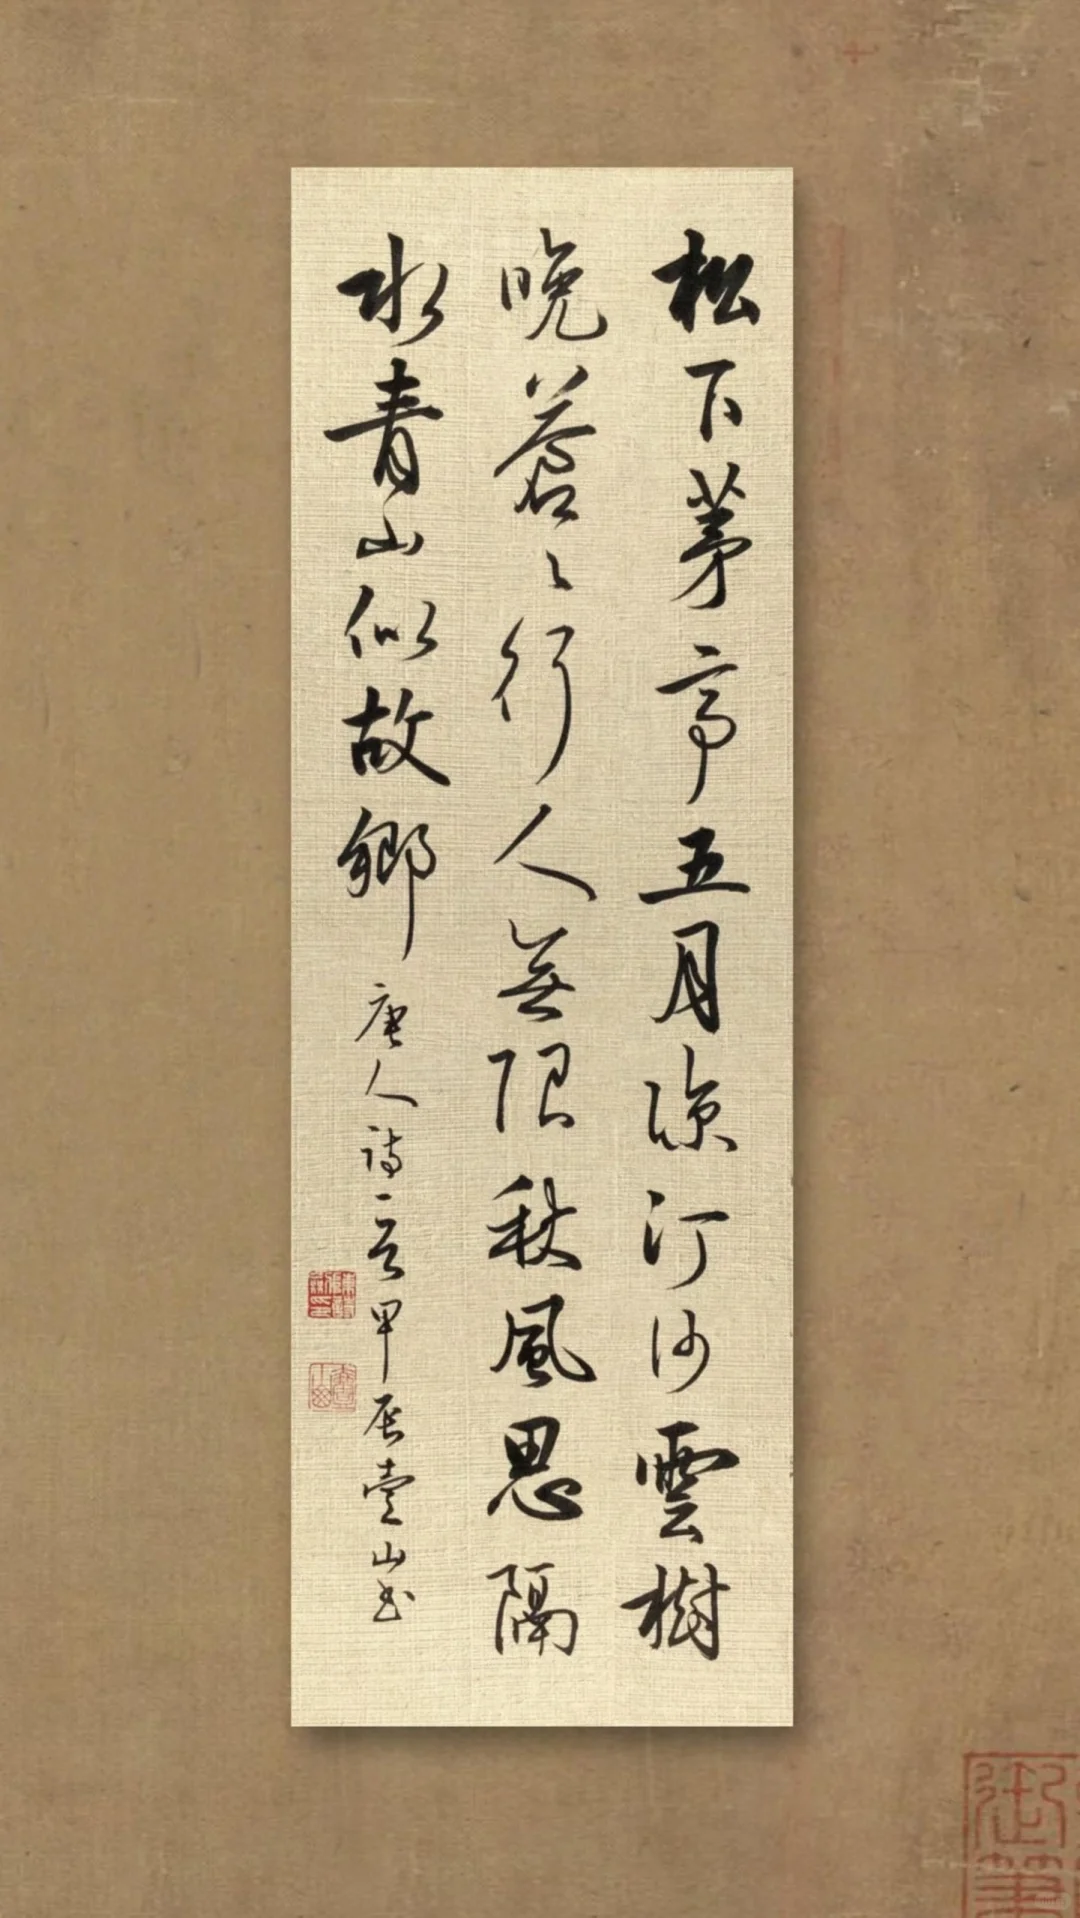 松下茅亭五月涼汀沙雲樹
晚蒼〻行人無限秋風思隔
水青山似故鄉
唐人詩一首甲辰壹山书
御筆